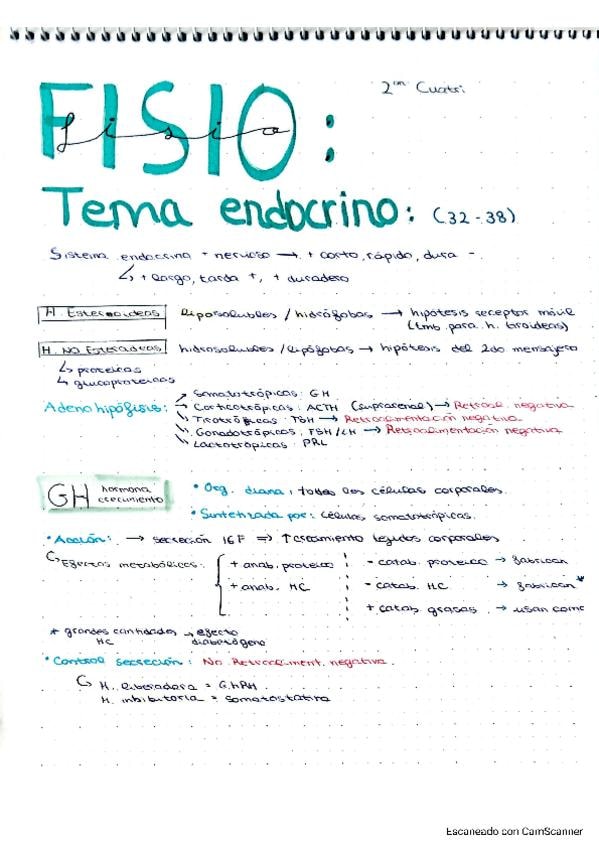 2º Cuatri
FISIO:
fisio
Tema endocrino: (32-38)
Sistema endocrino - nervioso → + corto, rápido, dura -
↳ + largo, tarda +, + duradero
H. Esteroideas liposolubles / hidrófobas → hipótesis receptor móvil
(tmb para h. tiroideas)
H. No Esteroideas hidrosolubles / lipófobas → hipótesis del 2do mensajero
↳ proteicas
↳ glucoproteicas
Adenohipófisis: Somatotrópicas: GH
Corticotrópicas: ACTH (suprarenal) → Retroal. negativa
Tirotróficas: TSH → Retroalimentación negativa
Gonadotrópicas, FSH/LH → Retroalimentación negativa
Lactotrópicas: PRL
GH hormona crecimiento
• Org. diana: todas las células corporales.
• Sintetizada por: células somatotrópicas.
• Acción: → secreción IGF ⇒ ↑ crecimiento tejidos corporales
↳ Efectos metabólicos: + anab. proteico - catab. proteico → fabrican
+ anab. HC - catab. HC → fabrican*
+ catab grasas → usan como
* grandes cantidades HC → efecto diabetógeno
• Control secreción: No Retroaliment. negativa.
↳ H. liberadora = GhRH
H. inhibitoria = somatostatina
Escaneado con CamScanner